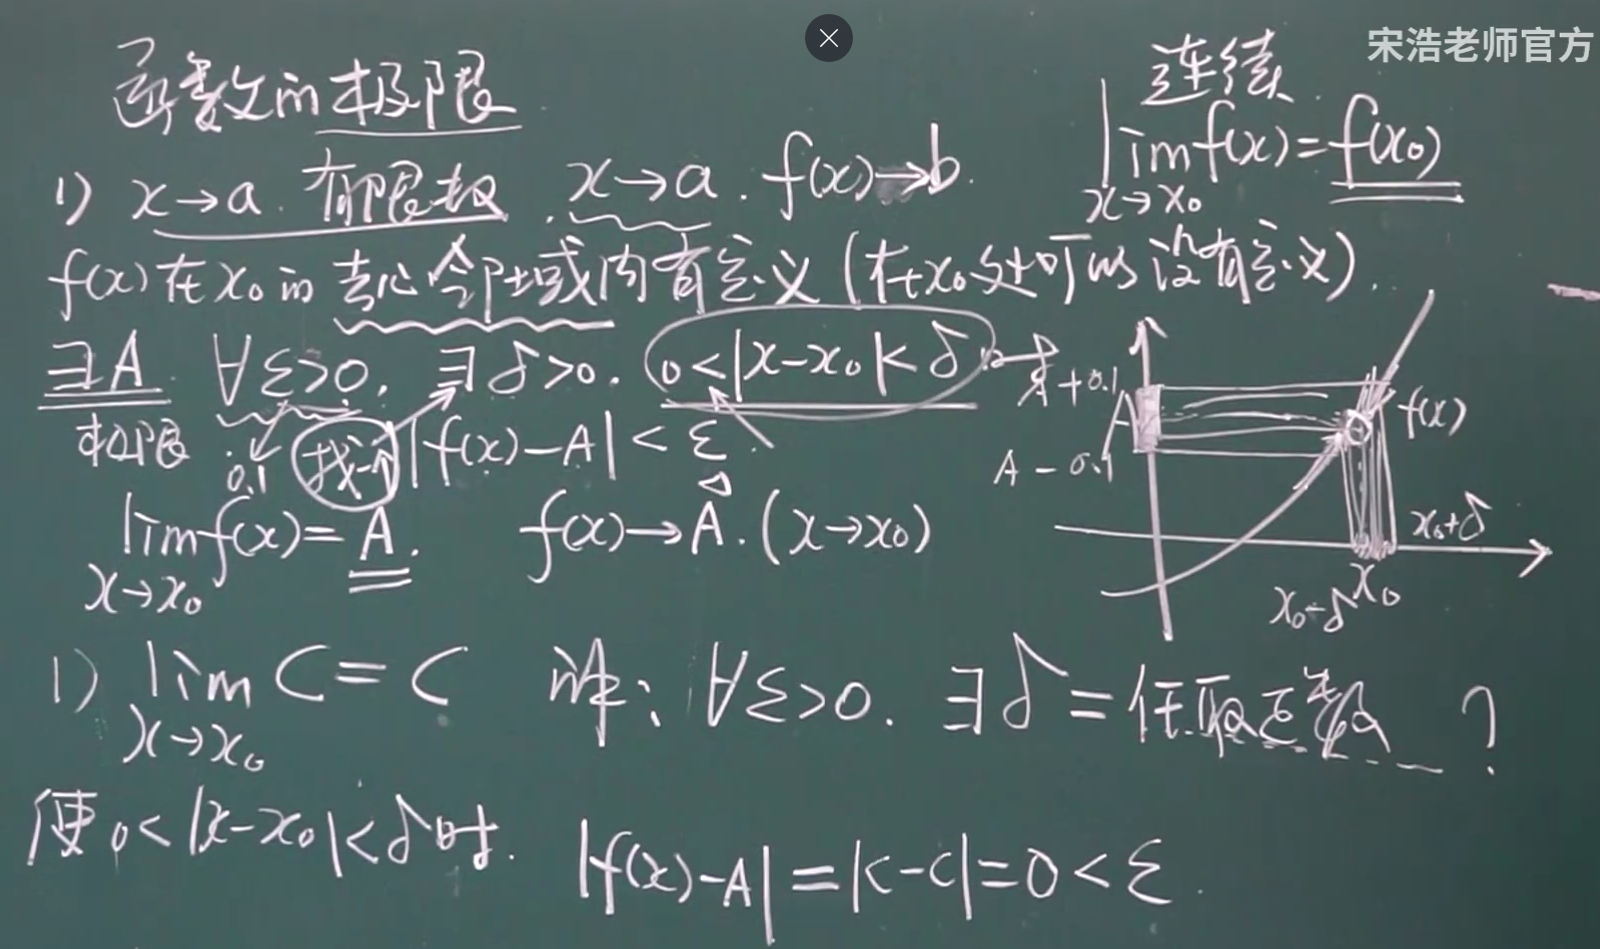 宋浩老师官方
函数的极限
连续
lim f(x)=f(x₀)
x→x₀
1) x→a. 有限数. x→a. f(x)→b.
f(x)在x₀的去心邻域内有定义(在x₀处可以没有定义).
∃A. ∀ε>0, ∃δ>0. 0<|x-x₀|<δ.
极限 0.1 找一个 |f(x)-A|<ε.
lim f(x)=A. f(x)→A. (x→x₀)
x→x₀
A+0.1
A
f(x)
A-0.1
x₀+δ
x₀-δ x₀
1) lim C=C 证: ∀ε>0. ∃δ=任取正数 ?
x→x₀
使0<|x-x₀|<δ时. |f(x)-A|=|C-C|=0<ε.